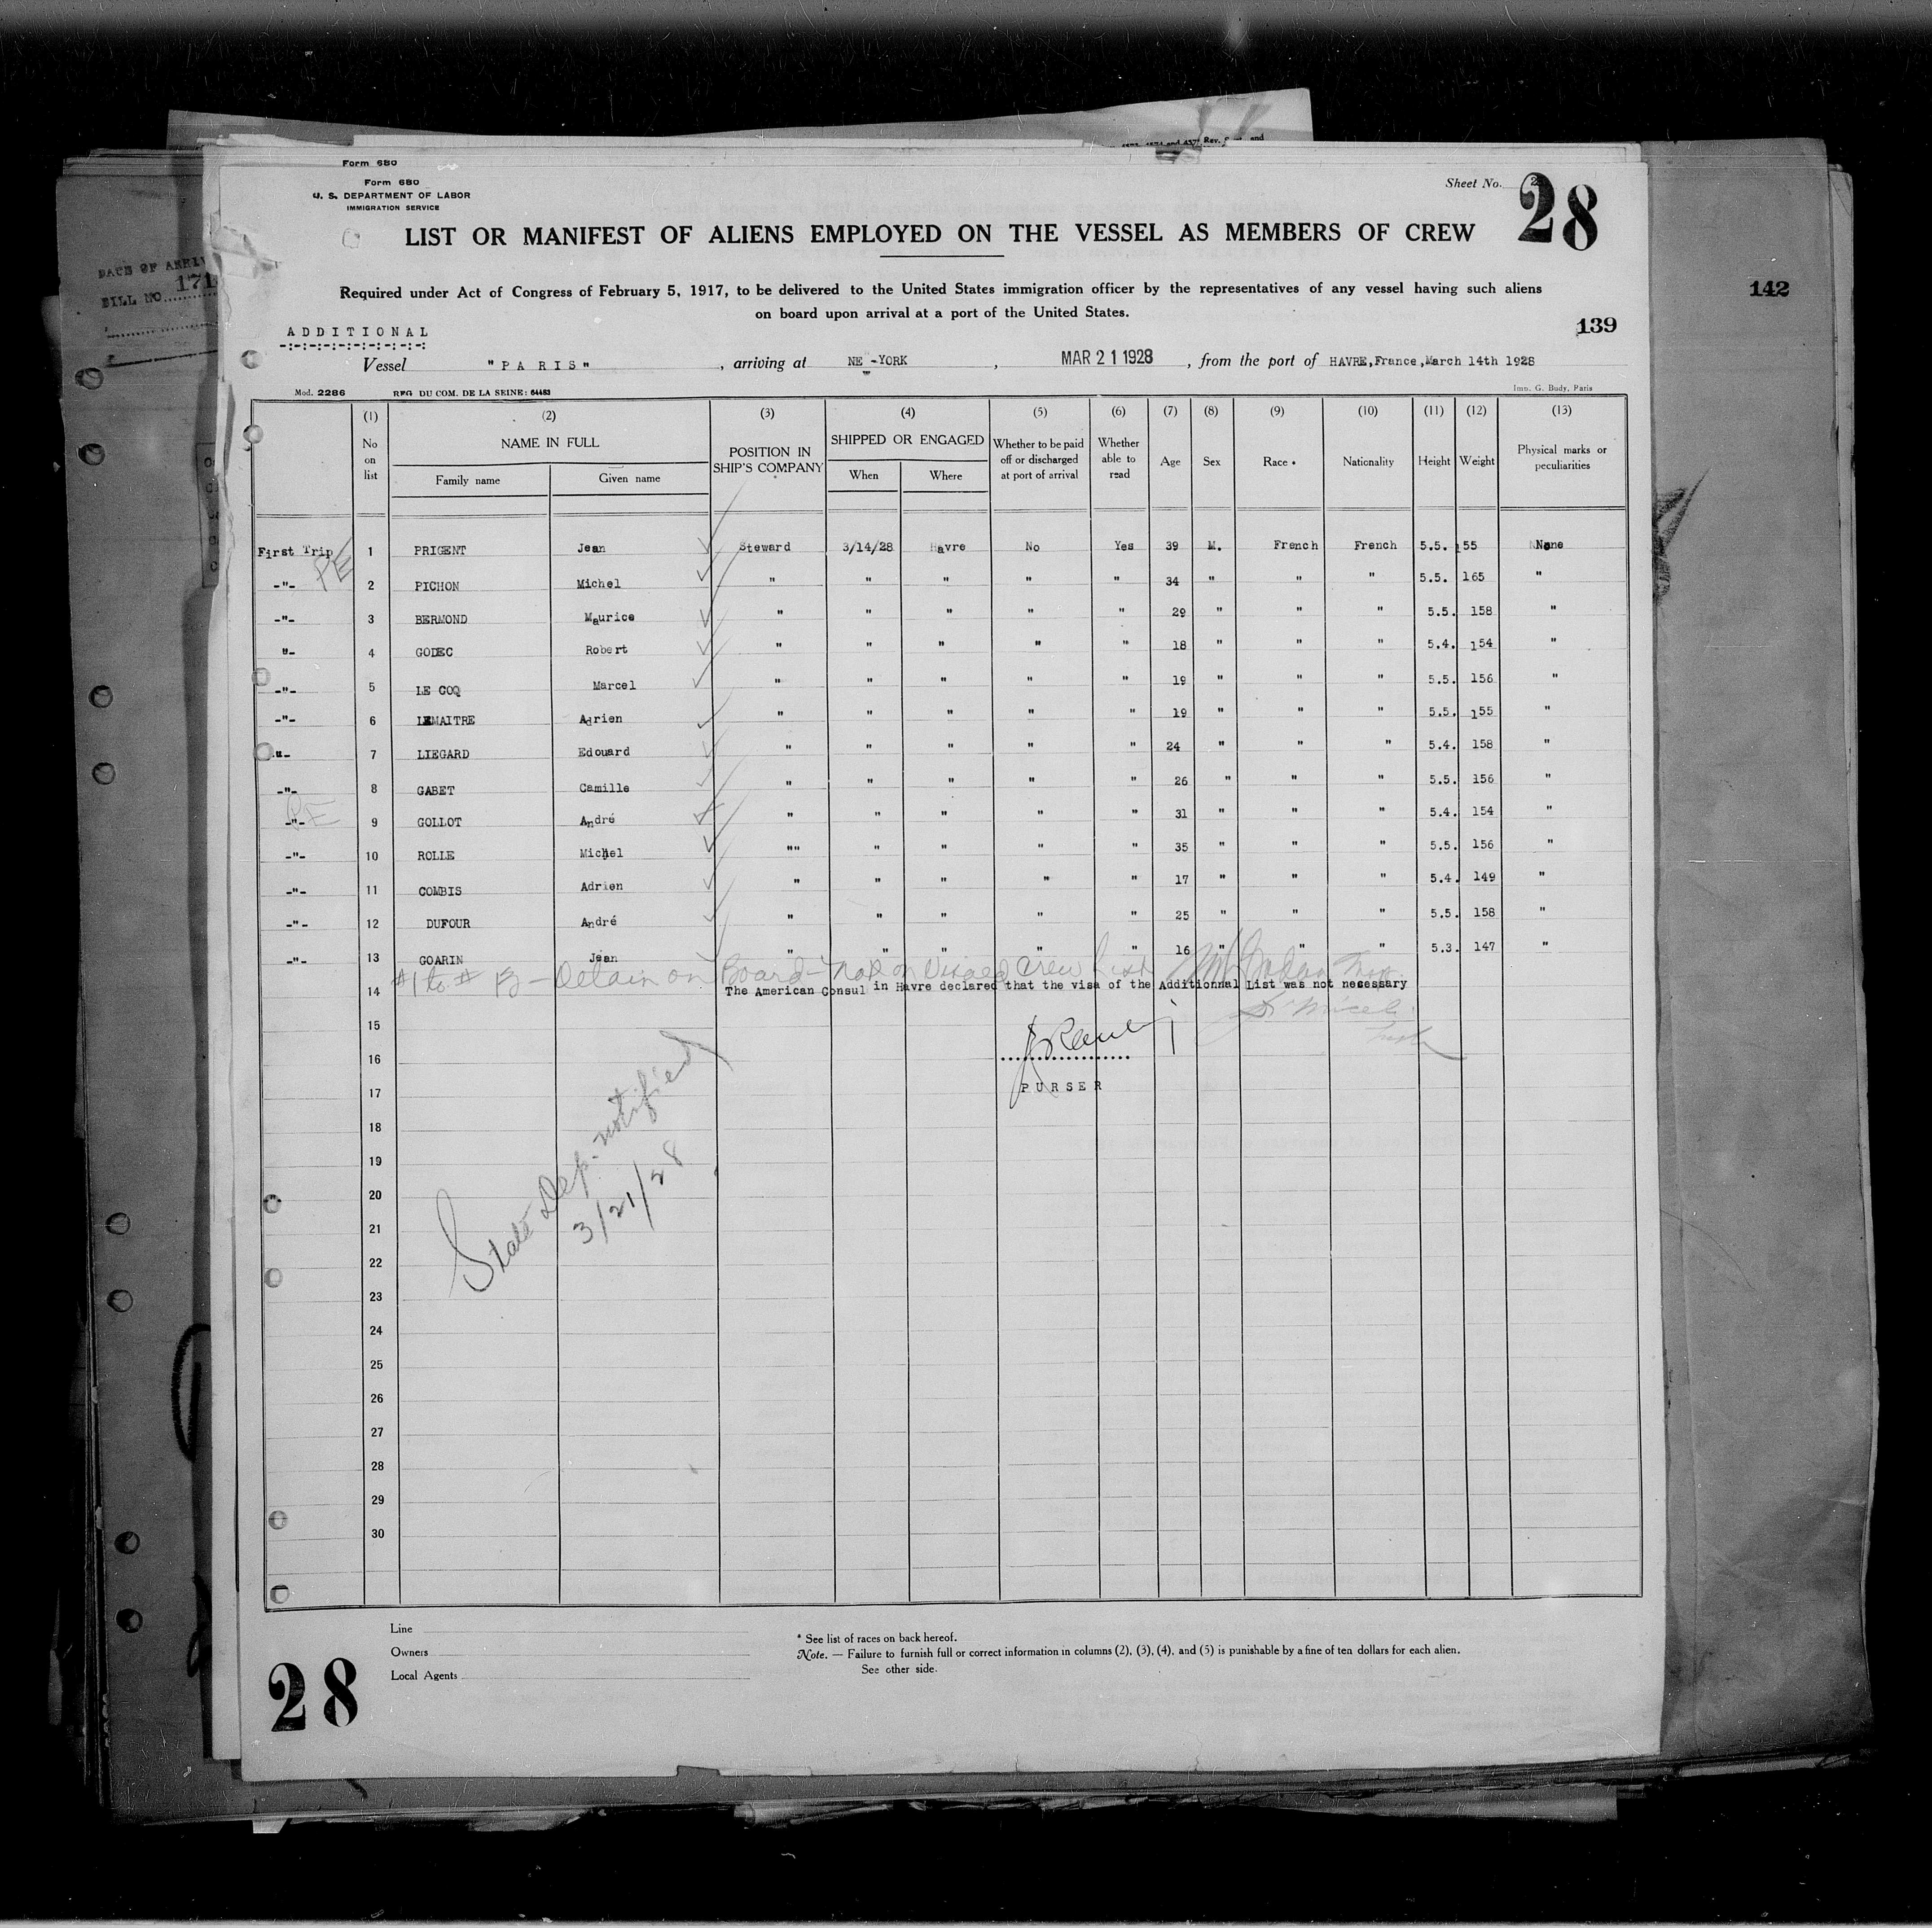 Form 680
Form 680
U. S. DEPARTMENT OF LABOR
IMMIGRATION SERVICE
Sheet No.
28
LIST OR MANIFEST OF ALIENS EMPLOYED ON THE VESSEL AS MEMBERS OF CREW
Required under Act of Congress of February 5, 1917, to be delivered to the United States immigration officer by the representatives of any vessel having such aliens
on board upon arrival at a port of the United States.
BILL NO. 171
142
139
ADDITIONAL
-:-:-:-:-:-:-:-:-:-:
Vessel "PARIS", arriving at NEW-YORK, MAR 21 1928, from the port of HAVRE,France,March 14th 1928
Mod. 2286 REG. DU COM. DE LA SEINE: 64483 Imp. G. Budy, Paris
(1) (2) (3) (4) (5) (6) (7) (8) (9) (10) (11) (12) (13)
No on list NAME IN FULL Family name Given name POSITION IN SHIP'S COMPANY SHIPPED OR ENGAGED When Where Whether to be paid off or discharged at port of arrival Whether able to read Age Sex Race * Nationality Height Weight Physical marks or peculiarities
First Trip 1 PRIGENT Jean Steward 3/14/28 Havre No Yes 39 M. French French 5.5. 155 None
PE
-"- 2 PICHON Michel " " " " " 34 " " " 5.5. 165 "
-"- 3 BERMOND Maurice " " " " " 29 " " " 5.5. 158 "
"- 4 GODEC Robert " " " " " 18 " " " 5.4. 154 "
-"- 5 LE COQ Marcel " " " " " 19 " " " 5.5. 156 "
-"- 6 LEMAITRE Adrien " " " " " 19 " " " 5.5. 155 "
"- 7 LIEGARD Edouard " " " " " 24 " " " 5.4. 158 "
-"- 8 GABET Camille " " " " " 26 " " " 5.5. 156 "
PE
-"- 9 GOLLOT André " " " " " 31 " " " 5.4. 154 "
-"- 10 ROLLE Michel "" " " " " 35 " " " 5.5. 156 "
-"- 11 COMBIS Adrien " " " " " 17 " " " 5.4. 149 "
-"- 12 DUFOUR André " " " " " 25 " " " 5.5. 158 "
-"- 13 GOARIN Jean " " " " " 16 " " " 5.3. 147 "
#1 to # 13 - Detain on Board - Not on Visaed Crew List
14 The American Consul in Havre declared that the visa of the Additionnal List was not necessary
15
16
17 PURSER
18
19
20
21
22
23
24
25
26
27
28
29
30
State Dep. notified
3/21/28
Line
Owners
Local Agents
* See list of races on back hereof.
Note. — Failure to furnish full or correct information in columns (2), (3), (4), and (5) is punishable by a fine of ten dollars for each alien.
See other side.
28